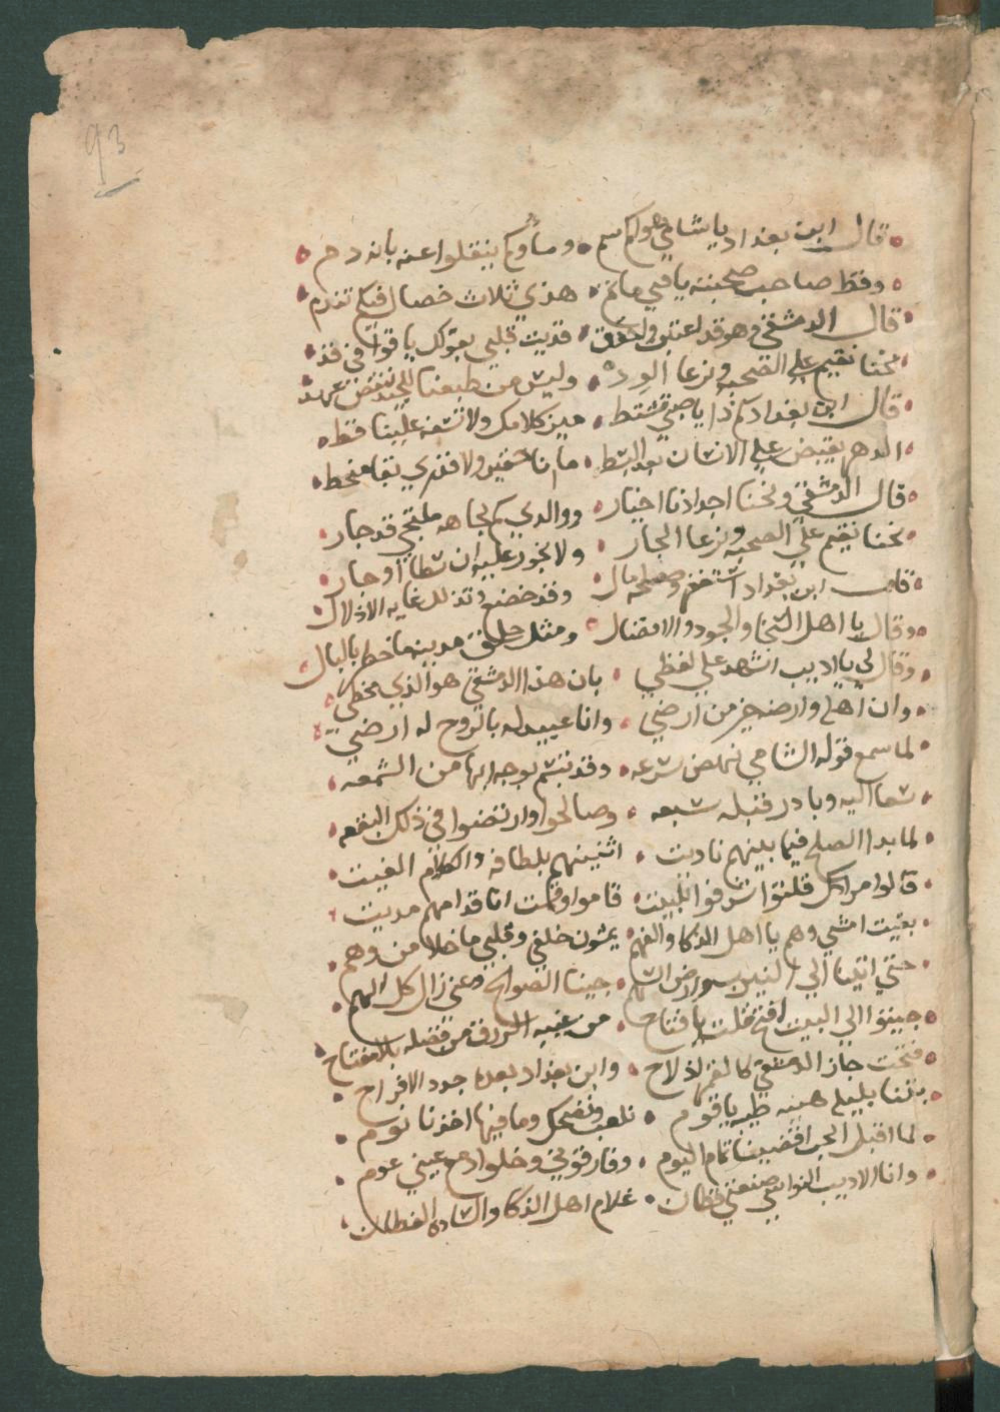 93
قال ابن بغداد يا شامي هولكم سم • وماؤكم ينقلوا عنه بانه دم
وقط صاحب صحبته يا فتي ماتم • هذي ثلاث خصال فيكم تندم
قال الدمشقي وهو قد اعتبن • فديت قلبي بقولك ياقوا في قد
نحنا نقيم علي الصحبه ونرعا الود • وليس من طبعنا
قال ابن بغداد كم ذا يا صبي تشتط • ميز كلامك ولا تشفه علينا قط
الدهر يقبض علي الانسان بعد البسط • ما نا حقير ولا قدري بقا منحط
قال الدمشقي ونحنا اجدادنا اخيار • ووالدي كم لجاهه ملتجي قد جار
نحنا نقيم علي الصحبه ونرعا الجار • ولا نجور عليه ان شطا اوجار
قام ابن بغداد استغفر وصلحه مال • وقد خضع وتذلل غاية الاذلال
وقال يا اهل السخا والجود والافضال • ومثل جلق مدينه ما خطر بالبال
وقال لي يا اديب اشهد علي لفظي • بان هذا الدمشقي هو الذي يحظي
وان اهله وارضه خير من ارضي • وانا عبيد له بالروح له ارضي
لما سمع قوله الشامي نهض سرعه • وقد تبسم بوجه ابها من الشمعه
سعا اليه وبادر قبله سبعه • وصالحوا وارتضوا في ذلك البقعه
لما بدا الصلح فيما بينهم ناديت • اثنينهم بلطافه والكلام الفيت
قالوا مرادك قلتوا شرفوا للبيت • قاموا وقمت انا قدامهم مديت
بقيت امشي وهم يا اهل الذكا والفهم • يمشون خلفي وقلبي ما خلا من وهم
حتي اتينا الي النيربسوا • جينا الصوالح وعني زال كل الهم
جيتوا الي البيت افتح قلت يا فتاح • من غيبه الرزق من فضله بلا مفتاح
فتحت جاز الدمشقي كالقمر اذ لاح • وابن بغداد بعده جدد الافراح
بتنا بليله هنيه طيبه يا قوم • نلعب ونضحك وما فيها اخذنا نوم
لما اقبل الحب اقضينا تمام اليوم • وفارقوني وخلوا دمع عيني عوم
وانا الاديب النواسي صنعتي قطان • غلام اهل الذكا والساده الفطان